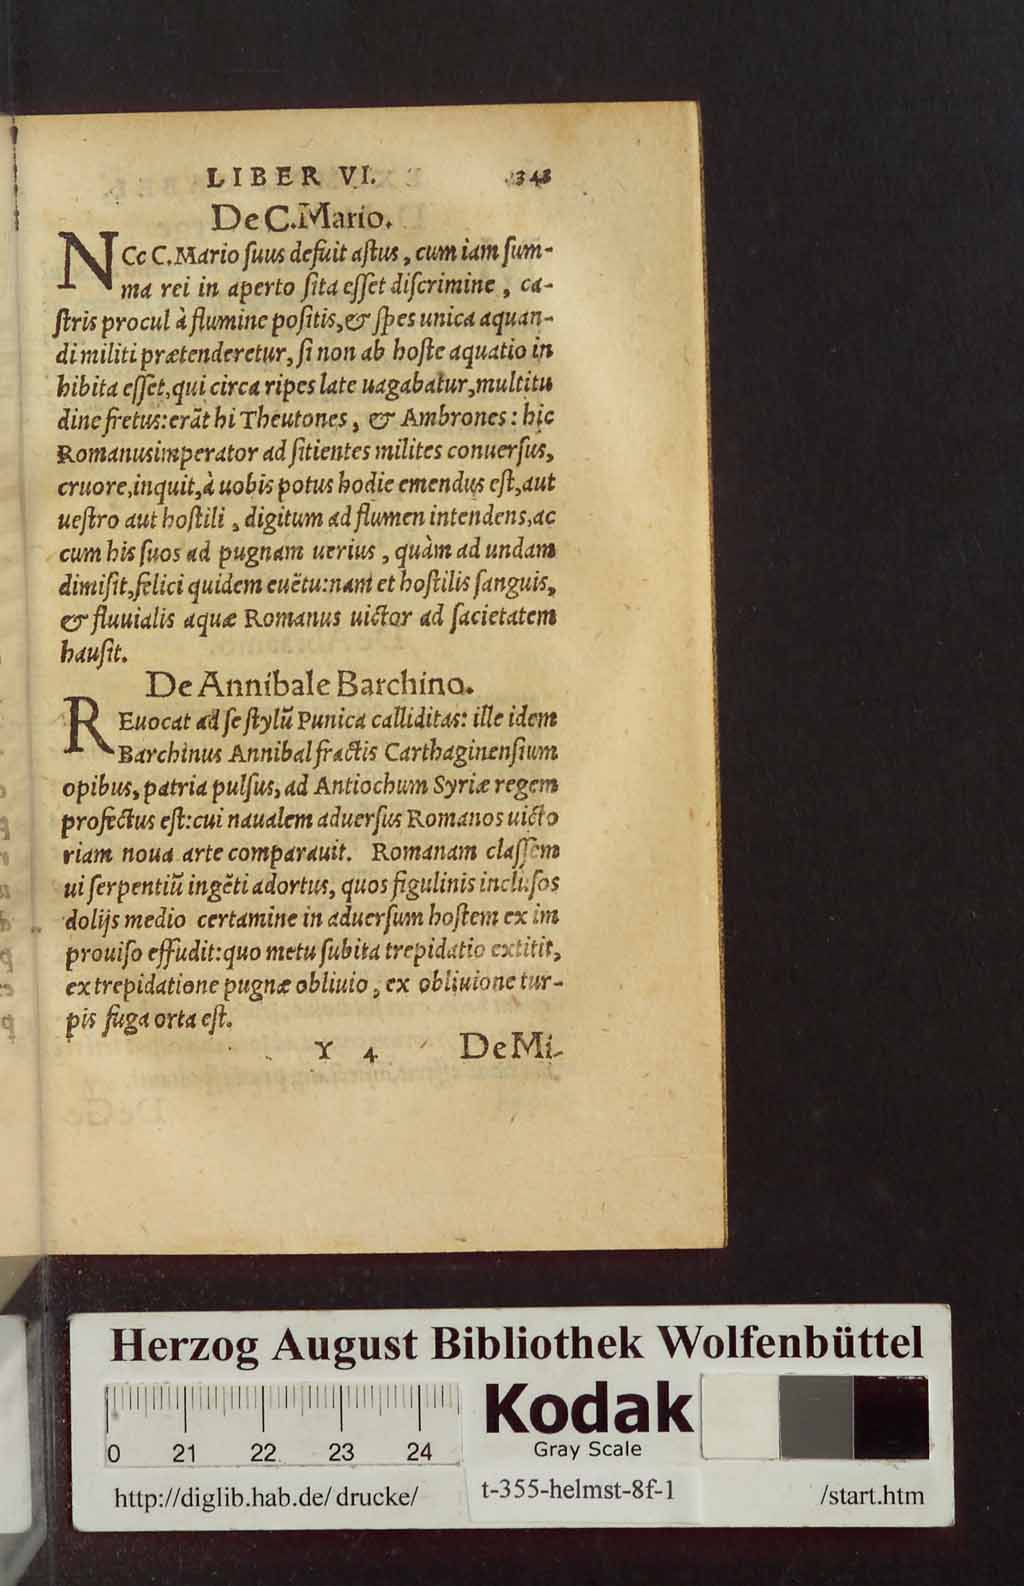 LIBER VI. 343
De C. Mario.
NEc C. Mario ſuus defuit aſtus, cum iam ſum-
ma rei in aperto ſita eſſet diſcrimine, ca-
ſtris procul à flumine poſitis, & ſpes unica aquan-
di militi prætenderetur, ſi non ab hoſte aquatio in
hibita eſſet, qui circa ripes late uagabatur, multitu
dine fretus: erãt hi Theutones, & Ambrones: hic
Romanus imperator ad ſitientes milites conuerſus,
cruore, inquit, à uobis potus hodie emendus eſt, aut
ueſtro aut hoſtili, digitum ad flumen intendens, ac
cum his ſuos ad pugnam uerius, quàm ad undam
dimiſit, felici quidem euẽtu: nam et hoſtilis ſanguis,
& fluuialis aquæ Romanus uictor ad ſacietatem
hauſit.
De Annibale Barchino.
REuocat ad ſe ſtylũ Punica calliditas: ille idem
Barchinus Annibal fractis Carthaginenſium
opibus, patria pulſus, ad Antiochum Syriæ regem
profectus eſt: cui naualem aduerſus Romanos uicto
riam noua arte comparauit. Romanam claſſem
ui ſerpentiũ ingẽti adortus, quos figulinis incluſos
dolijs medio certamine in aduerſum hoſtem ex im
prouiſo effudit: quo metu ſubita trepidatio extitit,
ex trepidatione pugnæ obliuio, ex obliuione tur-
pis fuga orta eſt.
Y 4 De Mi-
Herzog August Bibliothek Wolfenbüttel
0 21 22 23 24
Kodak
Gray Scale
http://diglib.hab.de/drucke/ t-355-helmst-8f-1 /start.htm